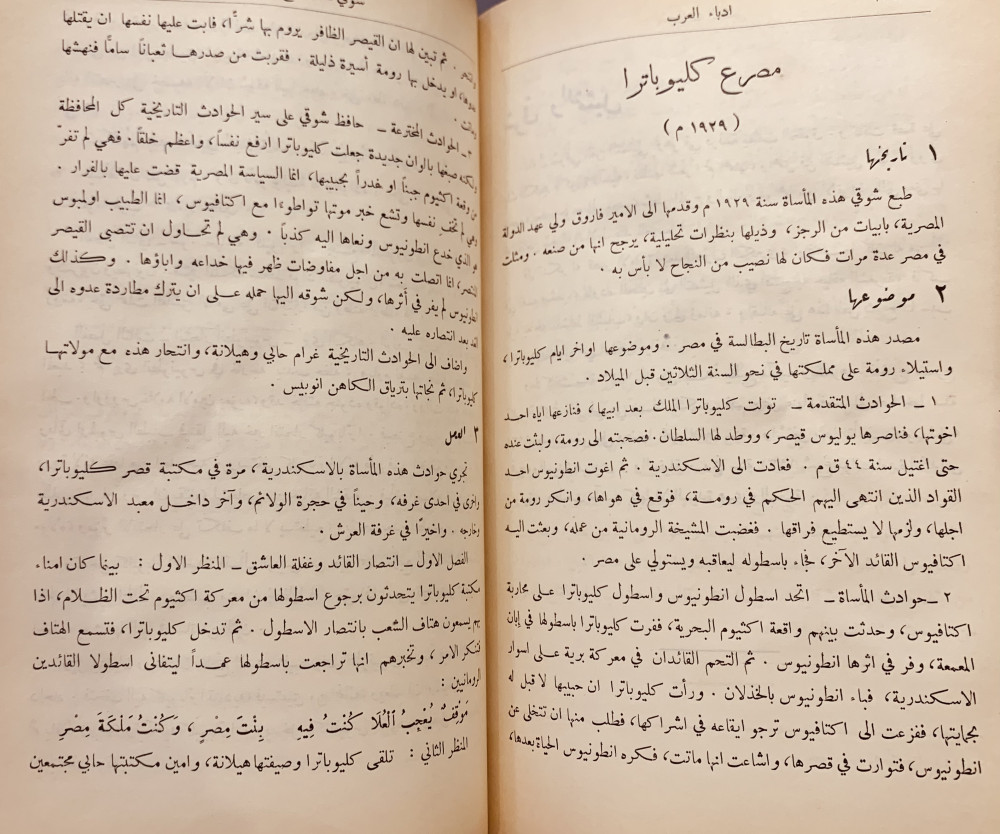 ادباء العرب
مصرع كليوباترا
( ١٩٢٩ م )
١ تاريخها
طبع شوقي هذه المأساة سنة ١٩٢٩ م وقدمها الى الامير فاروق ولي عهد الدولة
المصرية، بابيات من الرجز، وذيلها بنظرات تحليلية، يرجح انها من صنعه . ومثلت
في مصر عدة مرات فكان لها نصيب من النجاح لا بأس به .
٢ موضوعها
مصدر هذه المأساة تاريخ البطالسة في مصر . وموضوعها اواخر ايام كليوباترا،
واستيلاء رومة على مملكتها في نحو السنة الثلاثين قبل الميلاد .
١ – الحوادث المتقدمة – تولت كليوباترا الملك بعد ابيها، فنازعها اياه احد
اخوتها، فناصرها يوليوس قيصر، ووطد لها السلطان . فصحبته الى رومة، ولبثت عنده
حتى اغتيل سنة ٤٤ ق م . فعادت الى الاسكندرية . ثم اغوت انطونيوس احد
القواد الذين انتهى اليهم الحكم في رومة، فوقع في هواها، وانكر رومة من
اجلها، ولزمها لا يستطيع فراقها . فغضبت المشيخة الرومانية من عمله، وبعثت اليه
اكتافيوس القائد الآخر، فجاء باسطوله ليعاقبه ويستولي على مصر .
٢ – حوادث المأساة – اتحد اسطول انطونيوس واسطول كليوباترا على محاربة
اكتافيوس، وحدثت بينهم واقعة اكثيوم البحرية، ففرت كليوباترا باسطولها في إبان
المعمعة، وفر في اثرها انطونيوس . ثم التحم القائدان في معركة برية على اسوار
الاسكندرية، فباء انطونيوس بالخذلان . ورأت كليوباترا ان حبيبها لا قبل له
بحمايتها، ففزعت الى اكتافيوس ترجو ايقاعه في اشراكها، فطلب منها ان تتخلى عن
انطونيوس، فتوارت في قصرها، واشاعت انها ماتت، فكره انطونيوس الحياة بعدها،
وانتحر . ثم تبين لها ان القيصر الظافر يروم بها شرًّا، فابت عليها نفسها ان يقتلها
او يدخل بها رومة أسيرة ذليلة . فقربت من صدرها ثعباناً سامًّا فنهشها
وماتت .
٣ – الحوادث المخترعة – حافظ شوقي على سير الحوادث التاريخية كل المحافظة
ولكنه صبغها بالوان جديدة جعلت كليوباترا ارفع نفساً، واعظم خلقاً . فهي لم تفرّ
من وقعة اكثيوم جبناً او غدراً بحبيبها، انما السياسة المصرية قضت عليها بالفرار .
وهي لم تخف نفسها وتشع خبر موتها تواطوءًا مع اكتافيوس، انما الطبيب اولمبوس
هو الذي خدع انطونيوس ونعاها اليه كذباً . وهي لم تحاول ان تتصبى القيصر
المنتصر، انما اتصلت به من اجل مفاوضات ظهر فيها خداعه واباؤها . وكذلك
انطونيوس لم يفر في أثرها، ولكن شوقه اليها حمله على ان يترك مطاردة عدوه الى
بعد انتصاره عليه .
واضاف الى الحوادث التاريخية غرام حابي وهيلانة، وانتحار هذه مع مولاتها
كليوباترا، ثم نجاتها بترياق الكاهن انوبيس .
٣ العمل
تجري حوادث هذه المأساة بالاسكندرية، مرة في مكتبة قصر كليوباترا،
واخرى في احدى غرفه، وحيناً في حجرة الولائم، وآخر داخل معبد الاسكندرية
وخارجه . واخيرًا في غرفة العرش .
الفصل الاول – انتصار القائد وغفلة العاشق – المنظر الاول : بينما كان امناء
مكتبة كليوباترا يتحدثون برجوع اسطولها من معركة اكثيوم تحت الظلام، اذا
بهم يسمعون هتاف الشعب بانتصار الاسطول . ثم تدخل كليوباترا، فتسمع الهتاف
فتنكر الامر، وتخبرهم انها تراجعت باسطولها عمداً ليتفانى اسطولا القائدين
الرومانيين :
مَوقِفٌ يُعْجِبُ الْعُلَا كُنْتُ فِيهِ بِنْتَ مِصْرٍ ، وَكُنْتُ مَلْكَةَ مِصْرِ
المنظر الثاني : تلقى كليوباترا وصيفتها هيلانة، وامين مكتبتها حابي مجتمعين